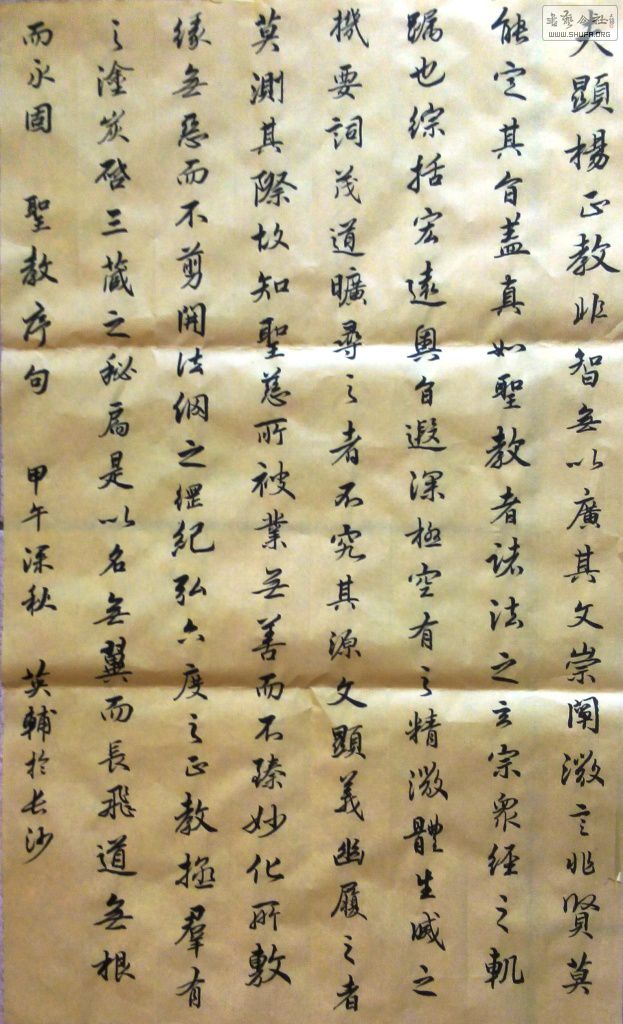 夫顯揚正教非智無以廣其文崇闡微言非賢莫
能定其旨蓋真如聖教者諸法之玄宗眾經之軌
躅也綜括宏遠奧旨遐深極空有之精微體生滅之
機要詞茂道曠尋之者不究其源文顯義幽履之者
莫測其際故知聖慈所被業無善而不臻妙化所敷
緣無惡而不剪開法網之綱紀弘六度之正教拯群有
之塗炭啓三藏之秘扃是以名無翼而長飛道無根
而永固 聖教序句 甲午深秋 英輔於长沙
WWW.SHUFA.ORG